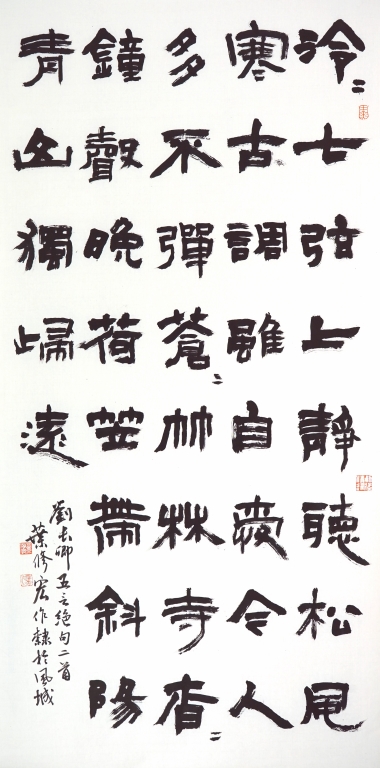 泠〻七弦上靜聽松風
寒古調雖自愛今人
多不彈蒼〻竹林寺杳〻
鐘聲晚荷笠帶斜陽
青山獨歸遠
劉長卿五言絕句二首
葉修宏作隸於鳳城